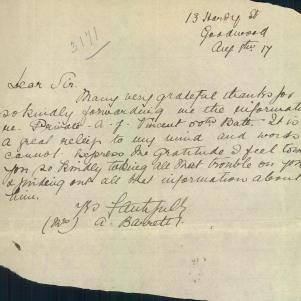 13 Henry St
Goodwood
Aug 8th 17
3171
Dear Sir.
Many very grateful thanks for
so kindly forwarding me the informati
re. Private A. J. Vincent 50th Batt. It is
a great relief to my mind and words
cannot express the gratitude I feel tow
you so kindly taking all that trouble on you
& finding out all that information about
him.
Yrs faithfully
(Mrs) A. Barrett.